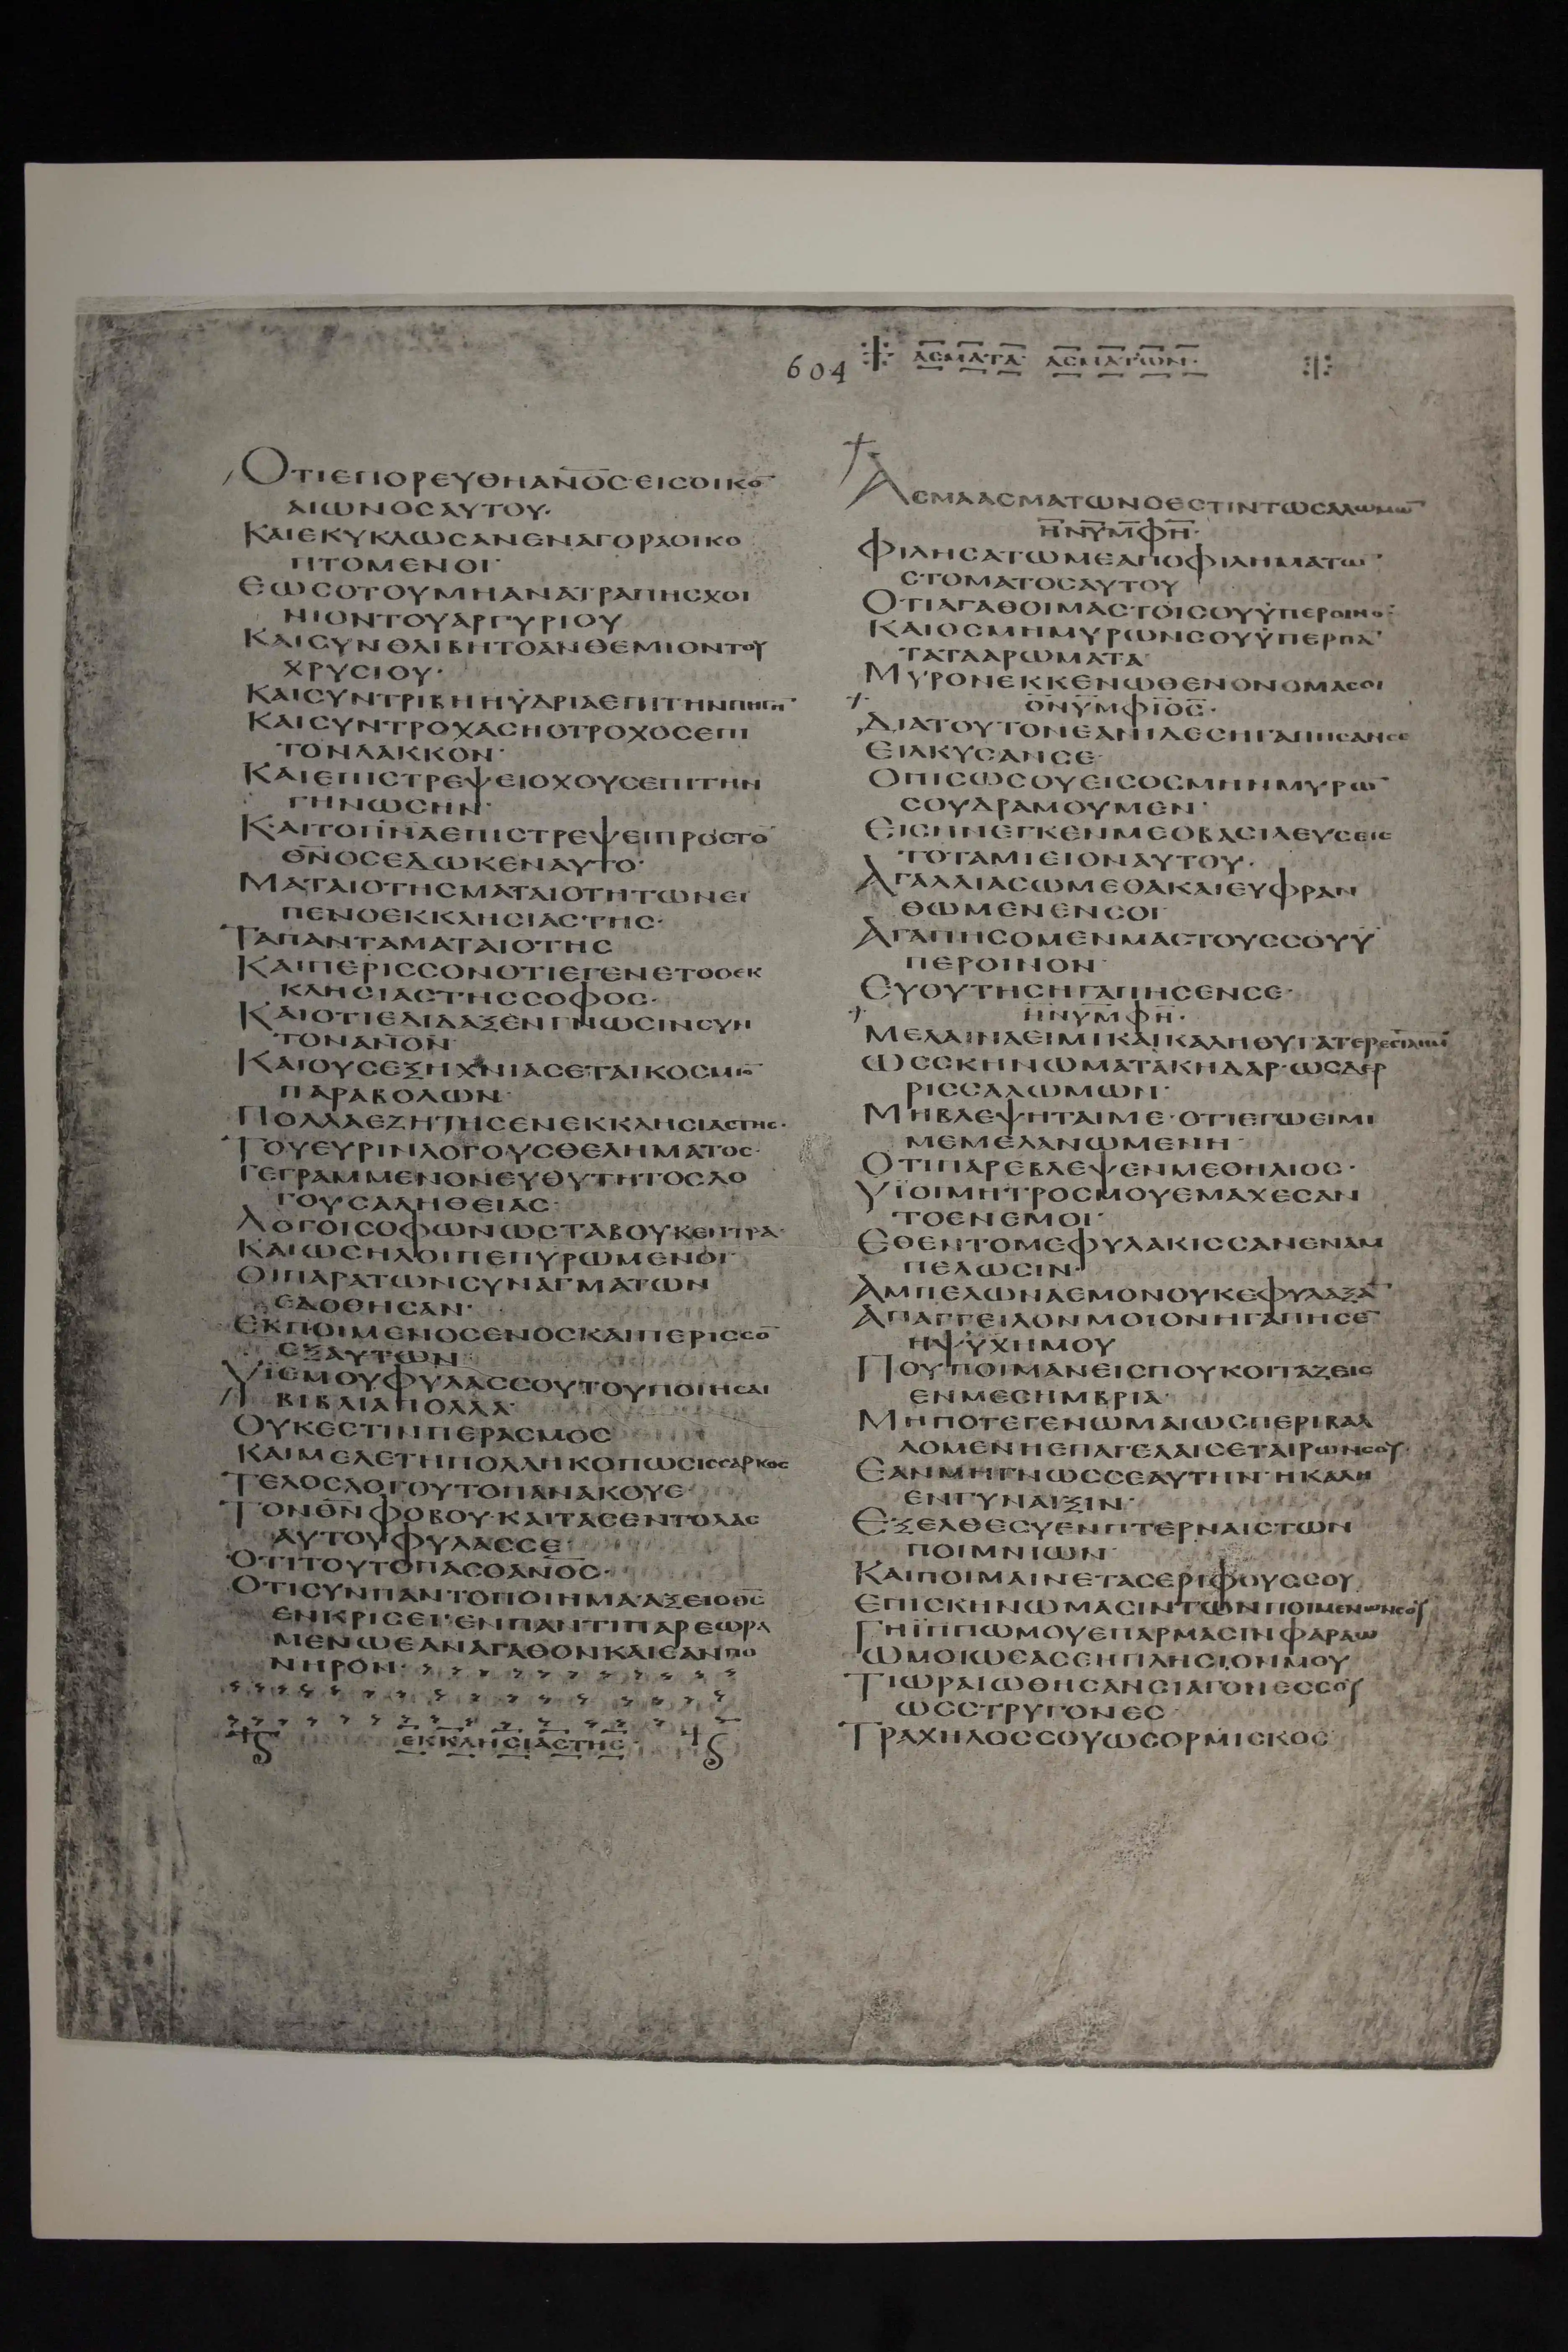 604 ΑΣΜΑΤΑ ΑΣΜΑΤΩΝ·
ΟΤΙΕΠΟΡΕΥΘΗΑΝΟΣ·ΕΙΣΟΙΚΟ̅
ΑΙΩΝΟΣΑΥΤΟΥ·
ΚΑΙΕΚΥΚΛΩΣΑΝΕΝΑΓΟΡΑΟΙΚΟ
ΠΤΟΜΕΝΟΙ·
ΕΩΣΟΤΟΥΜΗΑΝΑΤΡΑΠΗΣΧΟΙ
ΝΙΟΝΤΟΥΑΡΓΥΡΙΟΥ
ΚΑΙΣΥΝΘΛΙΒΗΤΟΑΝΘΕΜΙΟΝΤΟΥ
ΧΡΥΣΙΟΥ·
ΚΑΙΣΥΝΤΡΙΒΗΗΫΔΡΙΑΕΠΙΤΗΝΠΗΓΗ̅·
ΚΑΙΣΥΝΤΡΟΧΑΣΗΟΤΡΟΧΟΣΕΠΙ
ΤΟΝΛΑΚΚΟΝ·
ΚΑΙΕΠΙΣΤΡΕΨΕΙΟΧΟΥΣΕΠΙΤΗΝ
ΓΗΝΩΣΗΝ·
ΚΑΙΤΟΠΝ̅ΑΕΠΙΣΤΡΕΨΕΙΠΡΟΣΤΟ̅
ΘΝ̅ΟΣΕΔΩΚΕΝΑΥΤΟ·
ΜΑΤΑΙΟΤΗΣΜΑΤΑΙΟΤΗΤΩΝΕΙ
ΠΕΝΟΕΚΚΛΗΣΙΑΣΤΗΣ·
ΤΑΠΑΝΤΑΜΑΤΑΙΟΤΗΣ
ΚΑΙΠΕΡΙΣΣΟΝΟΤΙΕΓΕΝΕΤΟΟΕΚ
ΚΛΗΣΙΑΣΤΗΣΣΟΦΟΣ·
ΚΑΙΟΤΙΕΔΙΔΑΞΕΝΓΝΩΣΙΝΣΥΝ
ΤΟΝΑΝ̅ΟΝ
ΚΑΙΟΥΣΕΞΗΧΝΙΑΣΕΤΑΙΚΟΣΜΙΟ̅
ΠΑΡΑΒΟΛΩΝ·
ΠΟΛΛΑΕΖΗΤΗΣΕΝΕΚΚΛΗΣΙΑΣΤΗΣ·
ΤΟΥΕΥΡΙΝΛΟΓΟΥΣΘΕΛΗΜΑΤΟΣ·
ΓΕΓΡΑΜΜΕΝΟΝΕΥΘΥΤΗΤΟΣΛΟ
ΓΟΥΣΑΛΗΘΕΙΑΣ·
ΛΟΓΟΙΣΟΦΩΝΩΣΤΑΒΟΥΚΕΝΤΡΑ·
ΚΑΙΩΣΗΛΟΙΠΕΠΥΡΩΜΕΝΟΙ·
ΟΙΠΑΡΑΤΩΝΣΥΝΑΓΜΑΤΩΝ
ΕΔΟΘΗΣΑΝ·
ΕΚΠΟΙΜΕΝΟΣΕΝΟΣΚΑΙΠΕΡΙΣΣΟ̅
ΕΞΑΥΤΩΝ
ΥΪΕΜΟΥΦΥΛΑΣΣΟΥΤΟΥΠΟΙΗΣΑΙ
ΒΙΒΛΙΑΠΟΛΛΑ·
ΟΥΚΕΣΤΙΝΠΕΡΑΣΜΟΣ
ΚΑΙΜΕΛΕΤΗΠΟΛΛΗΚΟΠΩΣΙΣΣΑΡΚΟΣ
ΤΕΛΟΣΛΟΓΟΥΤΟΠΑΝΑΚΟΥΕ·
ΤΟΝΘΝ̅ΦΟΒΟΥ·ΚΑΙΤΑΣΕΝΤΟΛΑΣ
ΑΥΤΟΥΦΥΛΑΣΣΕ·
ΟΤΙΤΟΥΤΟΠΑΣΟΑΝ̅ΟΣ·
ΟΤΙΣΥΝΠΑΝΤΟΠΟΙΗΜΑΑΞΕΙΟΘΣ̅
ΕΝΚΡΙΣΕΙ·ΕΝΠΑΝΤΙΠΑΡΕΩΡΑ
ΜΕΝΩΕΑΝΑΓΑΘΟΝΚΑΙΕΑΝΠΟ
ΝΗΡΟΝ·
ΕΚΚΛΗΣΙΑΣΤΗΣ·
ΑΣΜΑΑΣΜΑΤΩΝΟΕΣΤΙΝΤΩΣΑΛΩΜΩ̅
ΗΝΥΜΦΗ·
ΦΙΛΗΣΑΤΩΜΕΑΠΟΦΙΛΗΜΑΤΩ̅
ΣΤΟΜΑΤΟΣΑΥΤΟΥ
ΟΤΙΑΓΑΘΟΙΜΑΣΤΟΙΣΟΥΫΠΕΡΟΙΝΟ̅·
ΚΑΙΟΣΜΗΜΥΡΩΝΣΟΥΫΠΕΡΠΑ̅
ΤΑΤΑΑΡΩΜΑΤΑ·
ΜΥΡΟΝΕΚΚΕΝΩΘΕΝΟΝΟΜΑΣΟΙ
ΟΝΥΜΦΙΟΣ·
ΔΙΑΤΟΥΤΟΝΕΑΝΙΔΕΣΗΓΑΠΗΣΑΝΣΕ
ΕΙΛΚΥΣΑΝΣΕ·
ΟΠΙΣΩΣΟΥΕΙΣΟΣΜΗΝΜΥΡΩ̅
ΣΟΥΔΡΑΜΟΥΜΕΝ·
ΕΙΣΗΝΕΓΚΕΝΜΕΟΒΑΣΙΛΕΥΣΕΙΣ
ΤΟΤΑΜΙΕΙΟΝΑΥΤΟΥ·
ΑΓΑΛΛΙΑΣΩΜΕΘΑΚΑΙΕΥΦΡΑΝ
ΘΩΜΕΝΕΝΣΟΙ·
ΑΓΑΠΗΣΟΜΕΝΜΑΣΤΟΥΣΣΟΥΫ
ΠΕΡΟΙΝΟΝ·
ΕΥΘΥΤΗΣΗΓΑΠΗΣΕΝΣΕ·
ΗΝΥΜΦΗ·
ΜΕΛΑΙΝΑΕΙΜΙΚΑΙΚΑΛΗΘΥΓΑΤΕΡΕΣΙΛΗΜ̅
ΩΣΣΚΗΝΩΜΑΤΑΚΗΔΑΡ·ΩΣΔΕΡ
ΡΙΣΣΑΛΩΜΩΝ·
ΜΗΒΛΕΨΗΤΑΙΜΕ·ΟΤΙΕΓΩΕΙΜΙ
ΜΕΜΕΛΑΝΩΜΕΝΗ·
ΟΤΙΠΑΡΕΒΛΕΨΕΝΜΕΟΗΛΙΟΣ·
ΥΪΟΙΜΗΤΡΟΣΜΟΥΕΜΑΧΕΣΑΝ
ΤΟΕΝΕΜΟΙ·
ΕΘΕΝΤΟΜΕΦΥΛΑΚΙΣΣΑΝΕΝΑΜ
ΠΕΛΩΣΙΝ·
ΑΜΠΕΛΩΝΑΕΜΟΝΟΥΚΕΦΥΛΑΞΑ̅
ΑΠΑΓΓΕΙΛΟΝΜΟΙΟΝΗΓΑΠΗΣΕ̅
ΗΨΥΧΗΜΟΥ
ΠΟΥΠΟΙΜΑΝΕΙΣΠΟΥΚΟΙΤΑΖΕΙΣ
ΕΝΜΕΣΗΜΒΡΙΑ·
ΜΗΠΟΤΕΓΕΝΩΜΑΙΩΣΠΕΡΙΒΑΛ
ΛΟΜΕΝΗΕΠΑΓΕΛΑΙΣΕΤΑΙΡΩΝΣΟΥ·
ΕΑΝΜΗΓΝΩΣΣΕΑΥΤΗΝ·ΗΚΑΛΗ
ΕΝΓΥΝΑΙΞΙΝ·
ΕΞΕΛΘΕΣΥΕΝΠΤΕΡΝΑΙΣΤΩΝ
ΠΟΙΜΝΙΩΝ·
ΚΑΙΠΟΙΜΑΙΝΕΤΑΣΕΡΙΦΟΥΣΣΟΥ
ΕΠΙΣΚΗΝΩΜΑΣΙΝΤΩΝΠΟΙΜΕΝΩΝΣΟΥ
ΤΗΪΠΠΩΜΟΥΕΠΑΡΜΑΣΙΝΦΑΡΑΩ
ΩΜΟΙΩΣΑΣΕΗΠΛΗΣΙΟΝΜΟΥ
ΤΙΩΡΑΙΩΘΗΣΑΝΣΙΑΓΟΝΕΣΣΟΥ
ΩΣΣΤΡΥΓΟΝΕΣ·
ΤΡΑΧΗΛΟΣΣΟΥΩΣΟΡΜΙΣΚΟΣ